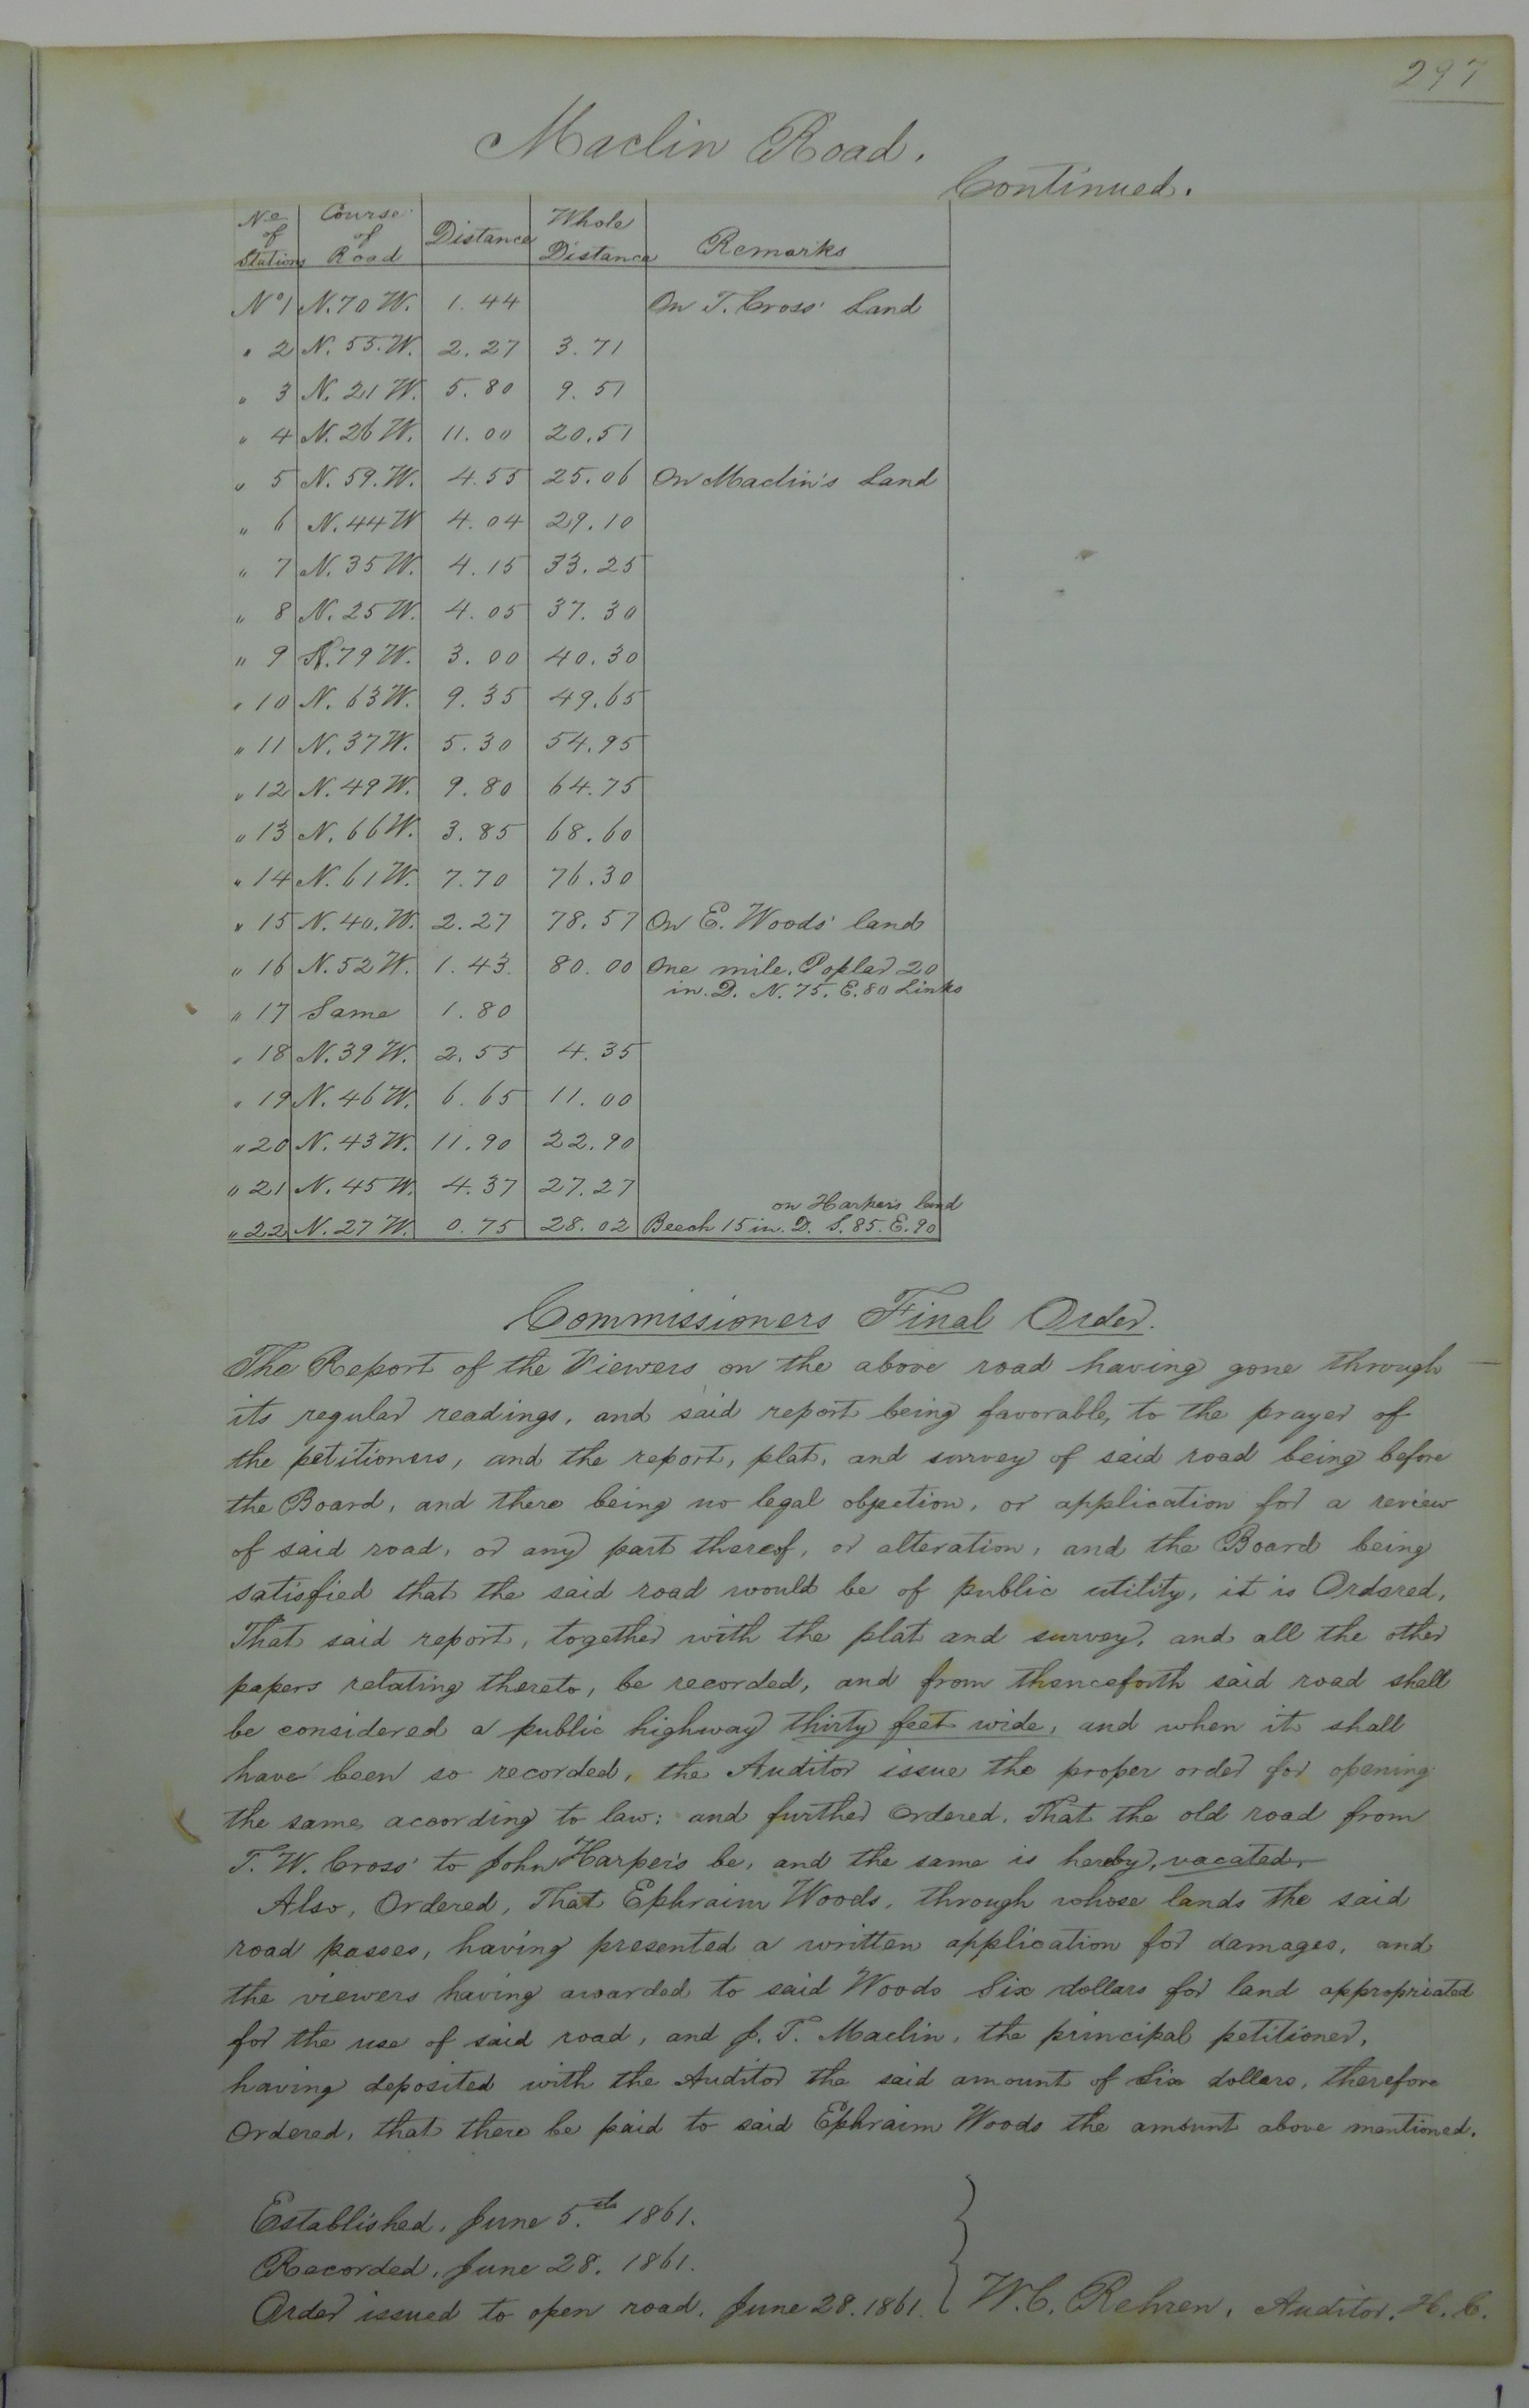 297
Maclin Road.
Continued.
No of Stations Course of Road Distance Whole Distance Remarks
No 1 N. 70 W. 1.44 On T. Cross' Land
" 2 N. 55. W. 2.27 3.71
" 3 N. 21 W. 5.80 9.51
" 4 N. 26 W. 11.00 20.51
" 5 N. 59. W. 4.55 25.06 On Maclin's Land
" 6 N. 44 W 4.04 29.10
" 7 N. 35 W. 4.15 33.25
" 8 N. 25 W. 4.05 37.30
" 9 79 W. 3.00 40.30
" 10 N. 63 W. 9.35 49.65
" 11 N. 37 W. 5.30 54.95
" 12 N. 49 W. 9.80 64.75
" 13 N. 66 W. 3.85 68.60
" 14 N. 61 W. 7.70 76.30
" 15 N. 40. W. 2.27 78.57 On E. Woods' land
" 16 N. 52 W. 1.43. 80.00 One mile. Poplar 20
in. D. N. 75. E. 80 Links
" 17 Same 1.80
" 18 N. 39 W. 2.55 4.35
" 19 N. 46 W. 6.65 11.00
" 20 N. 43 W. 11.90 22.90
" 21 N. 45 W. 4.37 27.27
on Harper's land
" 22 N. 27 W. 0.75 28.02 Beech 15 in. D. S. 85. E. 90
Commissioners Final Order.
The Report of the Viewers on the above road having gone through
its regular readings, and said report being favorable, to the prayer of
the petitioners, and the report, plat, and survey of said road being before
the Board, and there being no legal objection, or application for a review
of said road, or any part thereof, or alteration, and the Board being
satisfied that the said road would be of public utility, it is Ordered,
That said report, together with the plat and survey, and all the other
papers relating thereto, be recorded, and from thenceforth said road shall
be considered a public highway thirty feet wide, and when it shall
have been so recorded, the Auditor issue the proper order for opening
the same, acoording to law: and further Ordered. That the old road from
T. W. Cross' to John Harper's be, and the same is hereby, vacated,
Also, Ordered, That Ephraim Woods, through whose lands the said
road passes, having presented a written application for damages, and
the viewers having awarded to said Woods Six dollars for land appropriated
for the use of said road, and J. T. Maclin, the principal petitioner,
having deposited with the Auditor the said amount of six dollars, therefore
Ordered, that there be paid to said Ephraim Woods the amount above mentioned.
Established, June 5.th 1861.
Recorded, June 28. 1861.
Order issued to open road. June 28. 1861. } W. C. Rehren, Auditor. H. C.